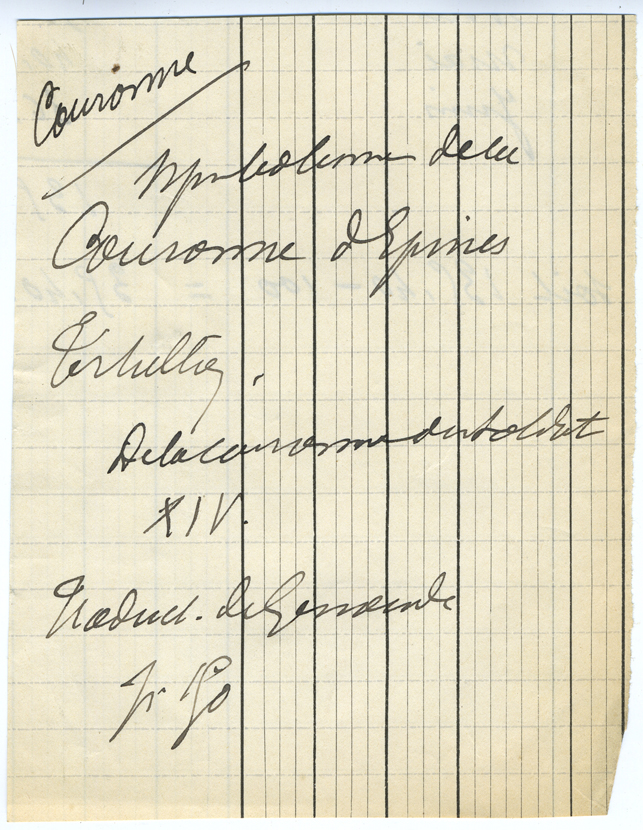 Couronne
Symbolisme de la
Couronne d'Epines
Tertullien,
De la couronne du soldat
XIV.
Traduct. de Genoude
p.